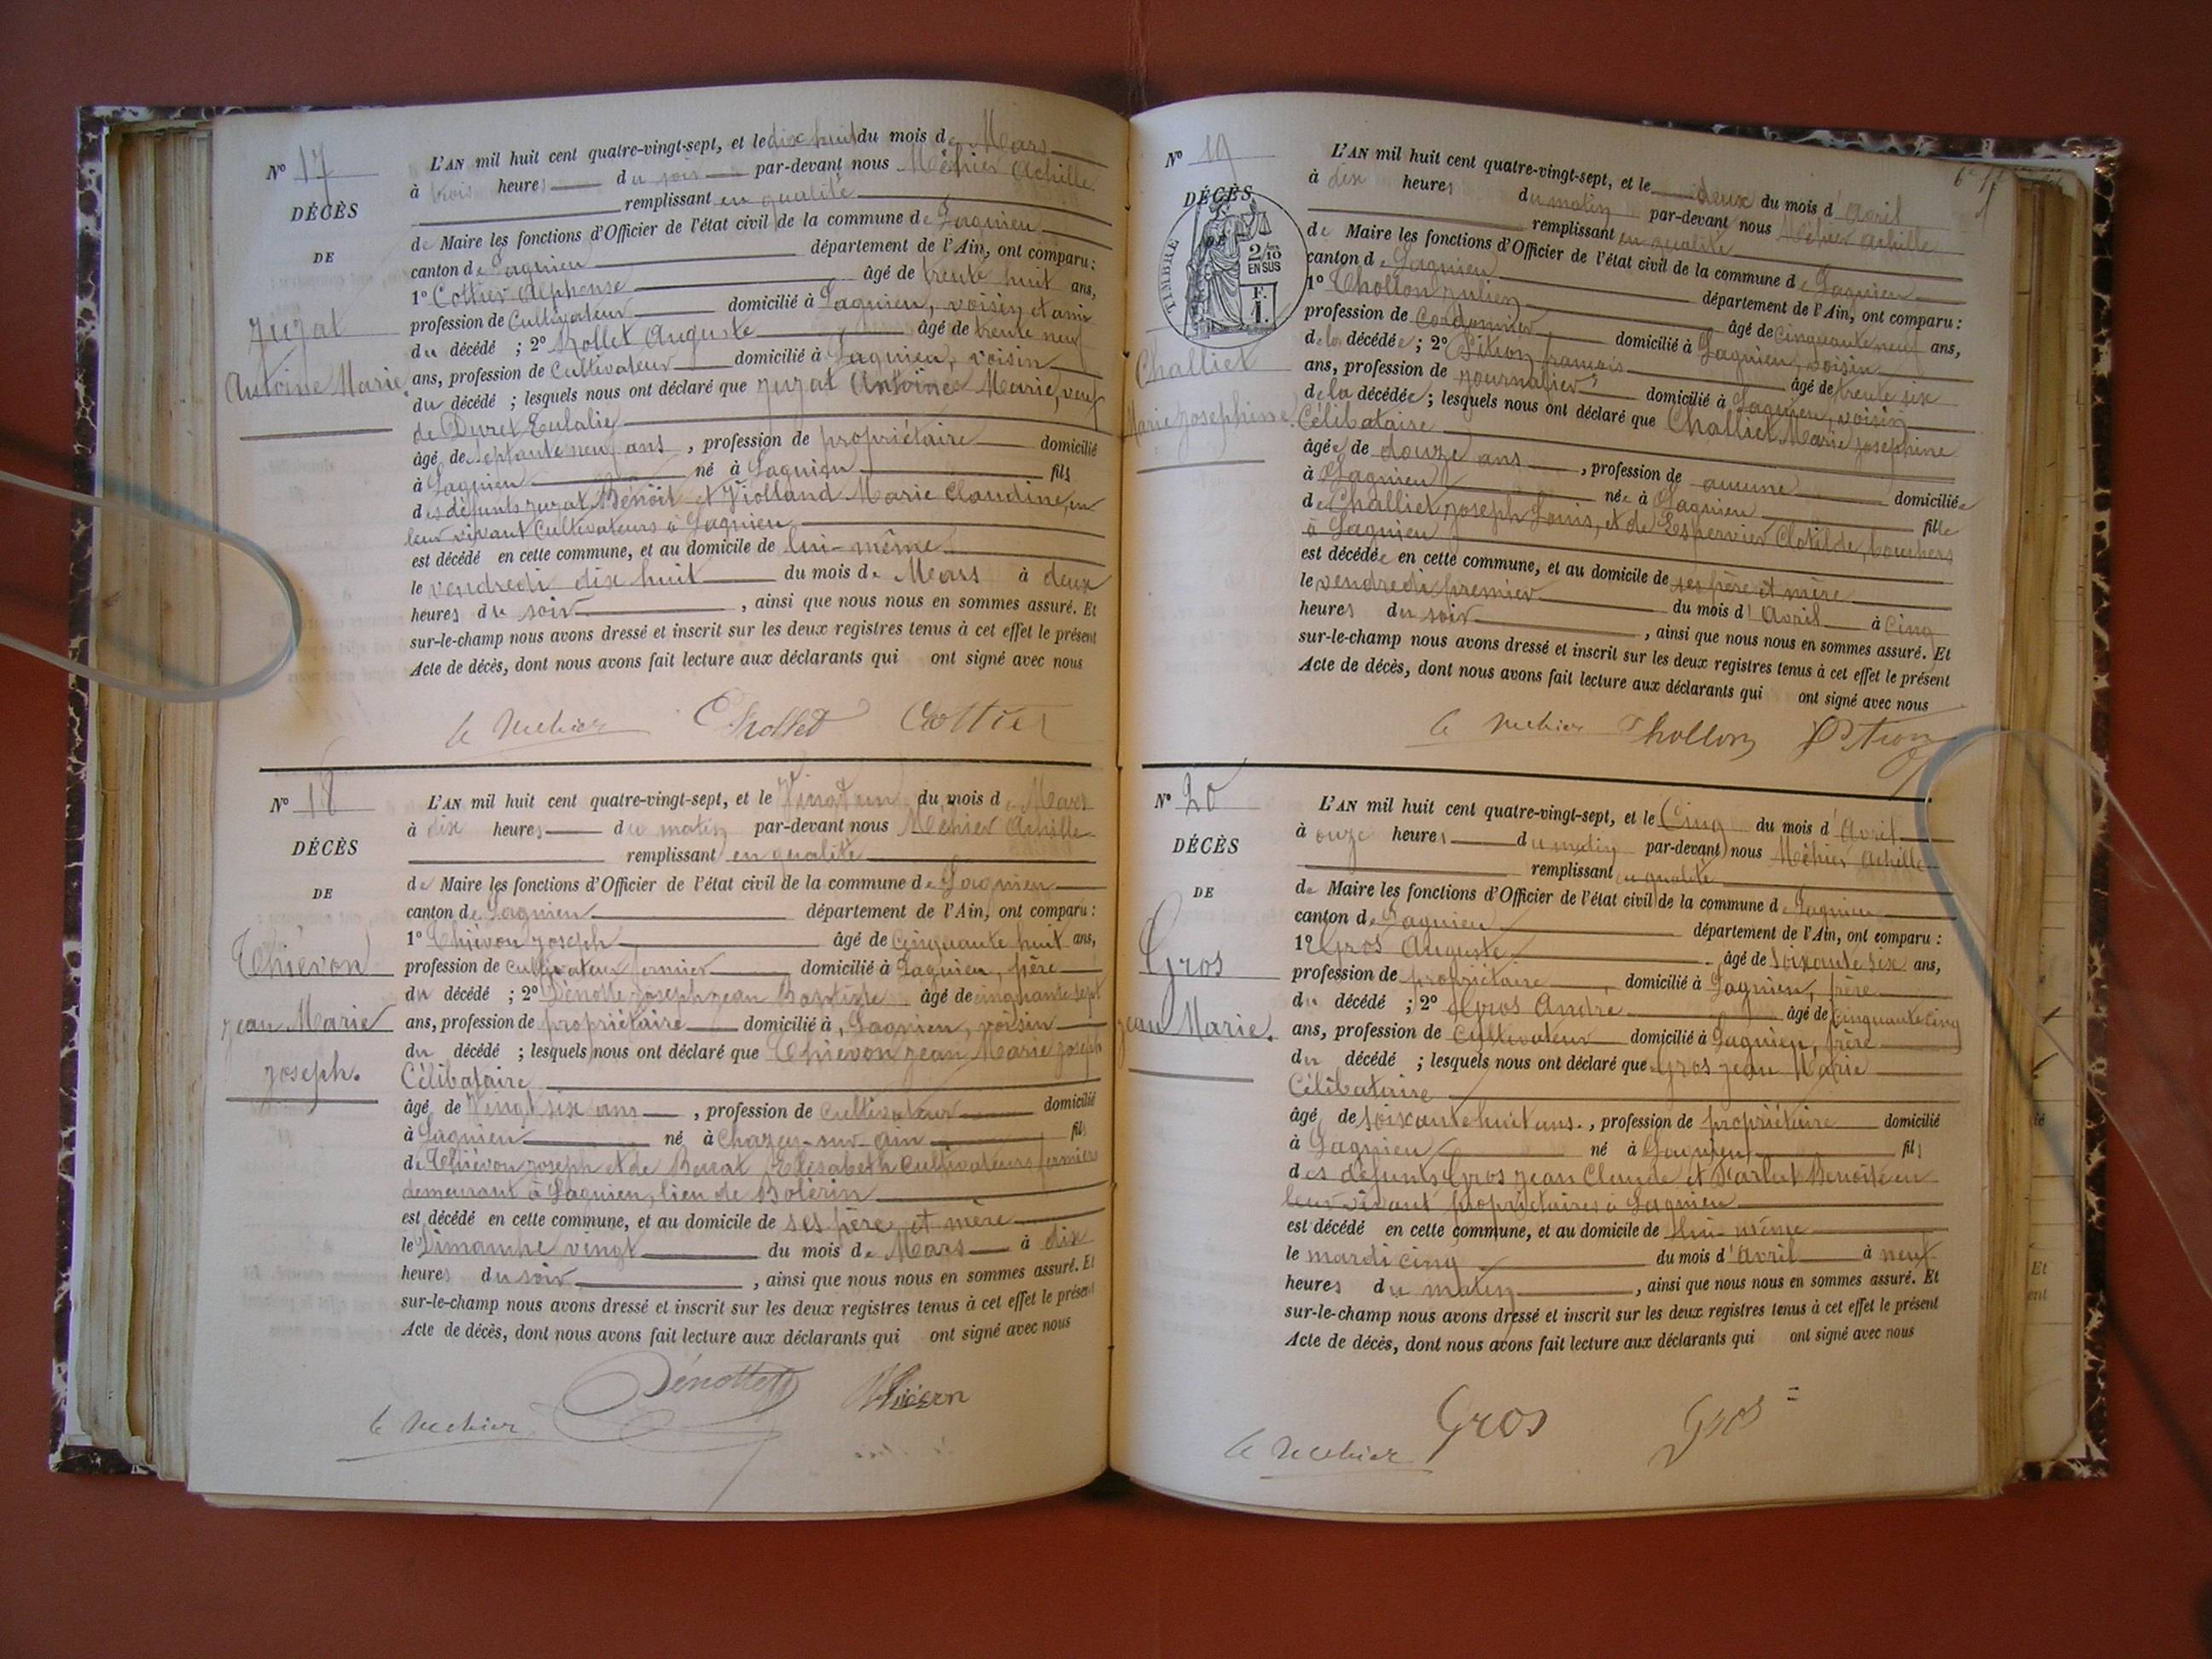 N° 17
DÉCÈS
DE
Juzat
Antoine Marie
L'AN mil huit cent quatre-vingt-sept, et le dix huit du mois de Mars
à trois heures du soir par-devant nous Méhier Achille
remplissant en qualité
de Maire les fonctions d'Officier de l'état civil de la commune de Lagnieu
canton de Lagnieu département de l'Ain, ont comparu :
1° Cottier Alphonse âgé de trente huit ans,
profession de Cultivateur domicilié à Lagnieu, voisin et ami
du décédé ; 2° Auguste âgé de trente neuf
ans, profession de Cultivateur domicilié à Lagnieu, voisin
du décédé ; lesquels nous ont déclaré que Juzat Antoine Marie, veuf
de Duret Eulalie
âgé de septante neuf ans , profession de propriétaire domicilié
à Lagnieu né à Lagnieu fils
des défunts Juzat Benoît et Violland Marie Claudine, en
leur vivant Cultivateurs à Lagnieu
est décédé en cette commune, et au domicile de lui-même
le vendredi dix huit du mois de Mars à deux
heures du soir , ainsi que nous nous en sommes assuré. Et
sur-le-champ nous avons dressé et inscrit sur les deux registres tenus à cet effet le présent
Acte de décès, dont nous avons fait lecture aux déclarants qui ont signé avec nous
Méhier Cottier
N° 18
DÉCÈS
DE
Thiévon
Jean Marie
Joseph.
L'AN mil huit cent quatre-vingt-sept, et le Vingt un du mois de Mars
à dix heures du matin par-devant nous Méhier Achille
remplissant en qualité
de Maire les fonctions d'Officier de l'état civil de la commune de Lagnieu
canton de Lagnieu département de l'Ain, ont comparu :
1° Thiévon Joseph âgé de Cinquante huit ans,
profession de cultivateur fermier domicilié à Lagnieu, père
du décédé ; 2° Joseph Jean Baptiste âgé de cinquante sept
ans, profession de propriétaire domicilié à Lagnieu, voisin
du décédé ; lesquels nous ont déclaré que Thiévon Jean Marie Joseph
Célibataire
âgé de Vingt six ans , profession de Cultivateur domicilié
à Lagnieu né à Chazey-sur-Ain fils
de Thiévon Joseph et de Elisabeth Cultivateurs fermiers
demeurant à Lagnieu, lieu de
est décédé en cette commune, et au domicile de ses père et mère
le Dimanche vingt du mois de Mars à dix
heures du soir , ainsi que nous nous en sommes assuré. Et
sur-le-champ nous avons dressé et inscrit sur les deux registres tenus à cet effet le présent
Acte de décès, dont nous avons fait lecture aux déclarants qui ont signé avec nous
Méhier
N° 19
DÉCÈS
DE
TIMBRE
2/10
EN SUS
F.
1.
Challiet
Marie Josephine.
L'AN mil huit cent quatre-vingt-sept, et le deux du mois d'Avril
à dix heures du matin par-devant nous Méhier Achille
remplissant en qualité
de Maire les fonctions d'Officier de l'état civil de la commune de Lagnieu
canton de Lagnieu département de l'Ain, ont comparu :
1° Thollon Julien âgé de cinquante neuf ans,
profession de Cordonnier domicilié à Lagnieu, voisin
de la décédée ; 2° Pition François âgé de trente six
ans, profession de journalier domicilié à Lagnieu, voisin
de la décédée ; lesquels nous ont déclaré que Challiet Marie Josephine
Célibataire
âgée de douze ans , profession de aucune domiciliée
à Lagnieu née à Lagnieu fille
de Challiet Joseph Louis, et de Espervier Clotilde, bouchers
à Lagnieu
est décédée en cette commune, et au domicile de ses père et mère
le vendredi premier du mois d'Avril à Cinq
heures du soir , ainsi que nous nous en sommes assuré. Et
sur-le-champ nous avons dressé et inscrit sur les deux registres tenus à cet effet le présent
Acte de décès, dont nous avons fait lecture aux déclarants qui ont signé avec nous
Méhier Thollon Pition
N° 20
DÉCÈS
DE
Gros
Jean Marie.
L'AN mil huit cent quatre-vingt-sept, et le Cinq du mois d'Avril
à onze heures du matin par-devant nous Méhier Achille
remplissant en qualité
de Maire les fonctions d'Officier de l'état civil de la commune de Lagnieu
canton de Lagnieu département de l'Ain, ont comparu :
1° Gros Auguste âgé de soixante six ans,
profession de propriétaire domicilié à Lagnieu, frère
du décédé ; 2° Gros André âgé de cinquante cinq
ans, profession de Cultivateur domicilié à Lagnieu, frère
du décédé ; lesquels nous ont déclaré que Gros Jean Marie
Célibataire
âgé de soixante huit ans. , profession de propriétaire domicilié
à Lagnieu né à Lagnieu fils
des défunts Gros Jean Claude et Benoite en
leur vivant propriétaires à Lagnieu
est décédé en cette commune, et au domicile de lui-même
le mardi cinq du mois d'Avril à neuf
heures du matin , ainsi que nous nous en sommes assuré. Et
sur-le-champ nous avons dressé et inscrit sur les deux registres tenus à cet effet le présent
Acte de décès, dont nous avons fait lecture aux déclarants qui ont signé avec nous
Méhier Gros Gros